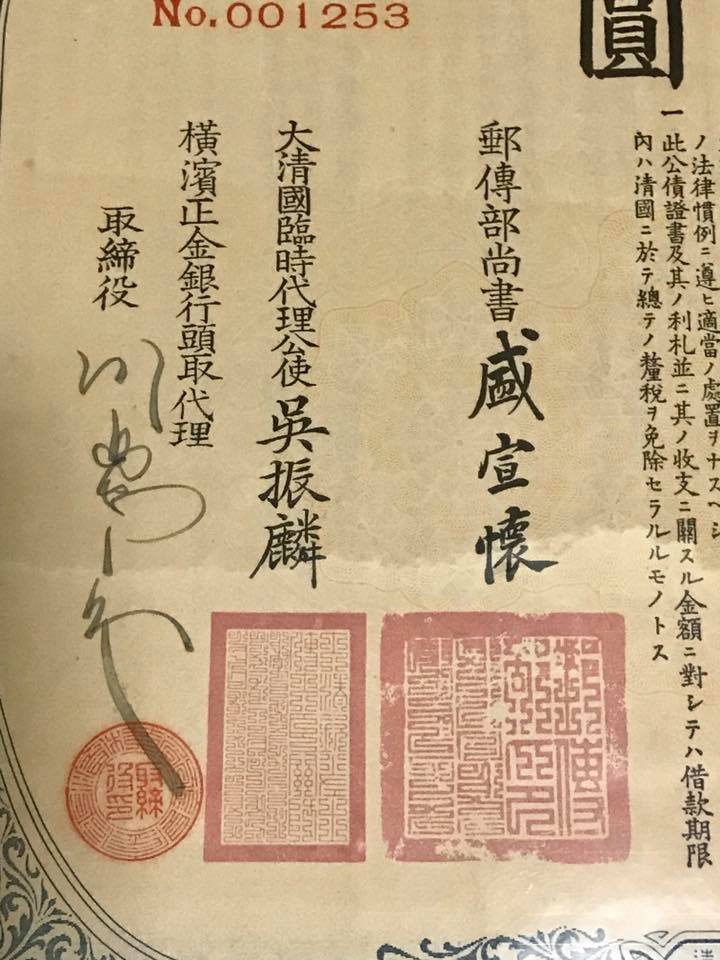 No.001253
圓
ノ法律慣例ニ遵ヒ適當ノ處置ヲナスヘシ
一此公債證書及其ノ利札並ニ其ノ收支ニ關スル金額ニ對シテハ借款期限
內ハ清國ニ於テ總テノ釐稅ヲ免除セラルルモノトス
郵傳部尚書 盛宣懷
大清國臨時代理公使 吳振麟
橫濱正金銀行頭取代理
取締役
取締役印